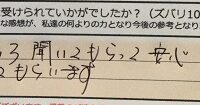 受けられていかがでしたか？（ズバリ10
な感想が、私達の何よりの力となり今後の参考となり
ろ聞いてもらって安心
てもらいます